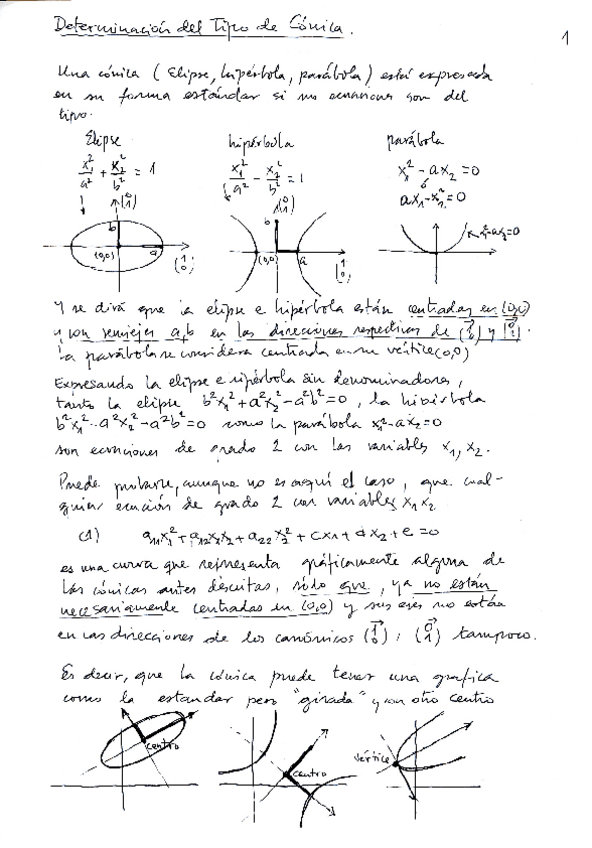 Determinación del Tipo de Cónica.
1
Una cónica (Elipse, hipérbola, parábola) está expresada
en su forma estándar si sus ecuaciones son del
tipo.
Elipse hipérbola parábola
x₁²/a² + x₂²/b² = 1 x₁²/a² - x₂²/b² = 1 x₁² - ax₂ = 0
ó
ax₁ - x₂² = 0
b (0,0) a (0 1) (1 0)
b (0,0) a (0 1) (1 0)
x₁² - ax₂ = 0
Y se dirá que la elipse e hipérbola están centradas en (0,0)
y son semiejes a, b en las direcciones respectivas de (1 0) y (0 1).
La parábola se considera centrada en su vértice (0,0)
Expresando la elipse e hipérbola sin denominadores,
tanto la elipse b²x₁² + a²x₂² - a²b² = 0, la hipérbola
b²x₁² - a²x₂² - a²b² = 0 como la parábola x₁² - ax₂ = 0
son ecuaciones de grado 2 con las variables x₁, x₂.
Puede probarse, aunque no es aquí el caso, que cual-
quier ecuación de grado 2 con variables x₁ x₂
(1) a₁₁x₁² + a₁₂x₁x₂ + a₂₂x₂² + cx₁ + dx₂ + e = 0
es una curva que representa gráficamente alguna de
las cónicas antes descritas, sólo que, ya no están
necesariamente centradas en (0,0) y sus ejes no están
en las direcciones de los canónicos (1 0) i (0 1) tampoco.
Es decir, que la cónica puede tener una gráfica
como la estandar pero "girada" y con otro centro
centro
centro
vértice